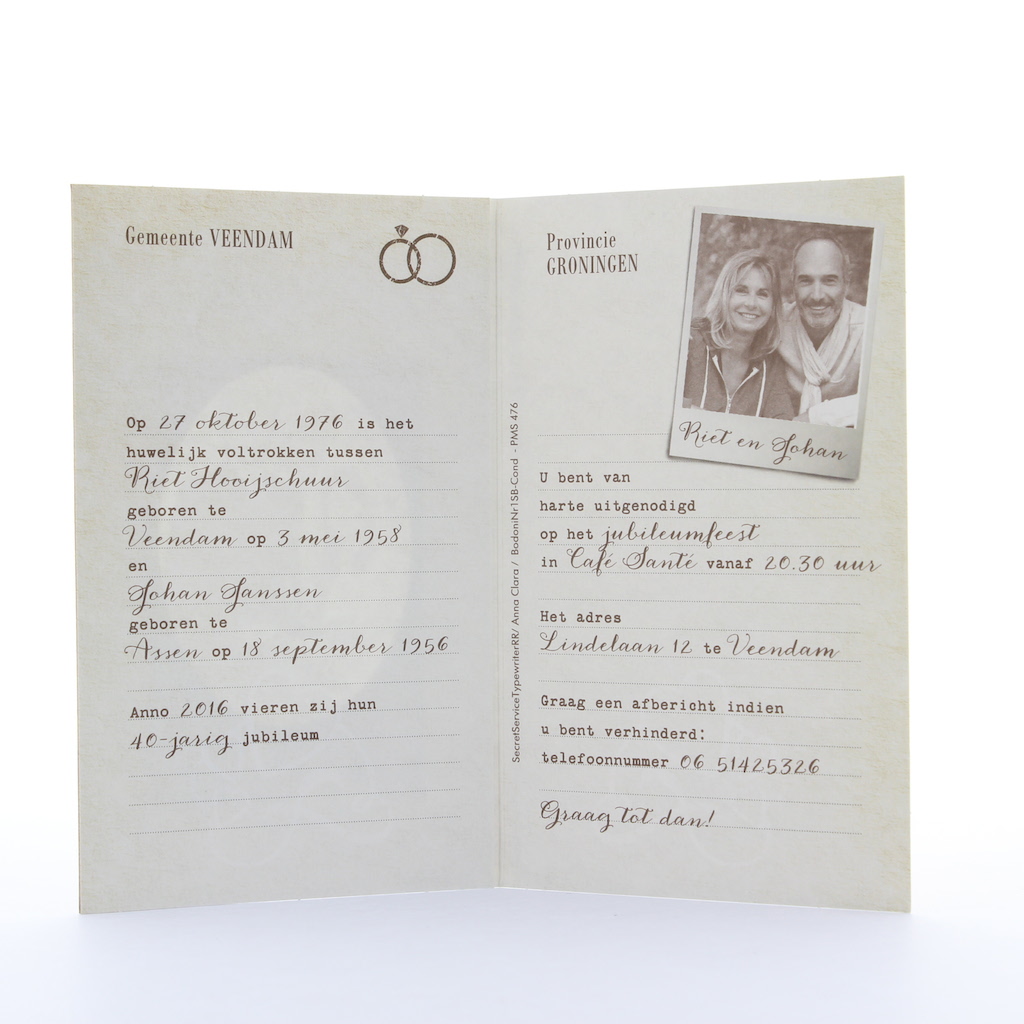 Gemeente VEENDAM
Op 27 oktober 1976 is het
huwelijk voltrokken tussen
Riet Hooijschuur
geboren te
Veendam op 3 mei 1958
en
Johan Janssen
geboren te
Assen op 18 september 1956
Anno 2016 vieren zij hun
40-jarig jubileum
SecretServiceTypewriterRR/ Anna Clara / BodoniNr1SB-Cond - PMS 476
Provincie
GRONINGEN
Riet en Johan
U bent van
harte uitgenodigd
op het jubileumfeest
in Café Santé vanaf 20.30 uur
Het adres
Lindelaan 12 te Veendam
Graag een afbericht indien
u bent verhinderd:
telefoonnummer 06 51425326
Graag tot dan!